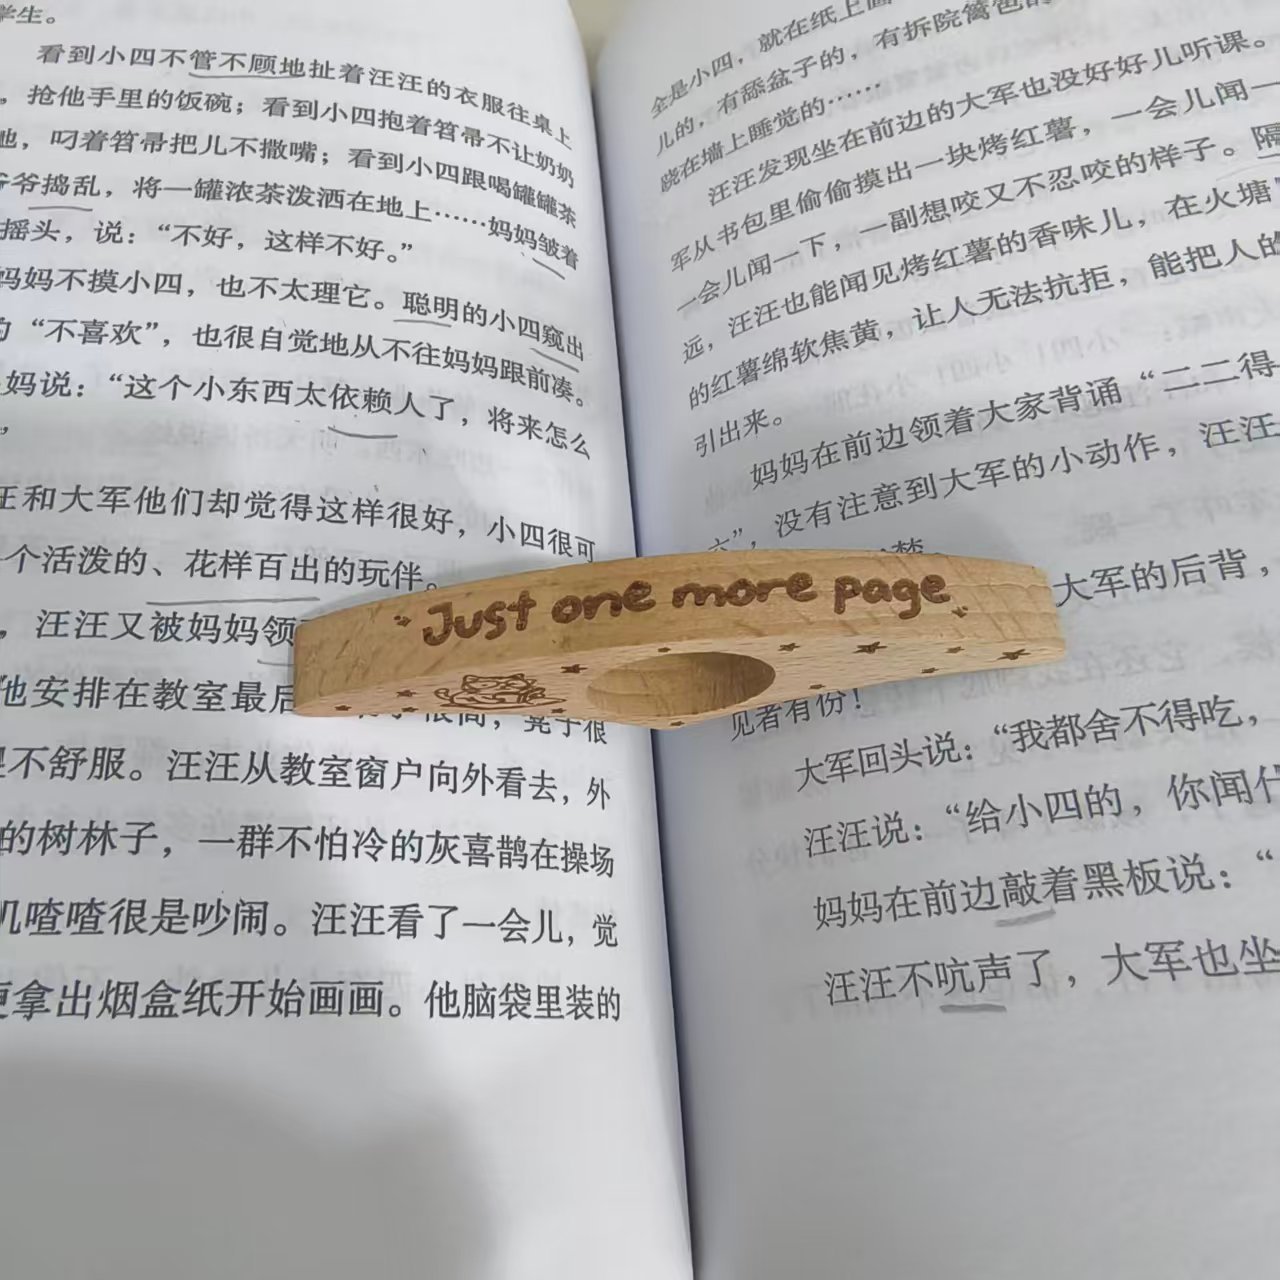 学生。
看到小四不管不顾地扯着汪汪的衣服往桌上
，抢他手里的饭碗；看到小四抱着笤帚不让奶奶
地，叼着笤帚把儿不撒嘴；看到小四跟喝罐罐茶
爷爷捣乱，将一罐浓茶泼洒在地上……妈妈皱着
摇头，说：“不好，这样不好。”
妈妈不摸小四，也不太理它。聪明的小四窥出
的“不喜欢”，也很自觉地从不往妈妈跟前凑。
妈说：“这个小东西太依赖人了，将来怎么
”
汪和大军他们却觉得这样很好，小四很可
个活泼的、花样百出的玩伴。
，汪汪又被妈妈领
他安排在教室最后
很高，凳子很
不舒服。汪汪从教室窗户向外看去，外
的树林子，一群不怕冷的灰喜鹊在操场
叽喳喳很是吵闹。汪汪看了一会儿，觉
便拿出烟盒纸开始画画。他脑袋里装的
全是小四，就在纸上画
儿的，有舔盆子的，有拆院篱笆的
跷在墙上睡觉的……
汪汪发现坐在前边的大军也没好好儿听课。
军从书包里偷偷摸出一块烤红薯，一会儿闻一
一会儿闻一下，一副想咬又不忍咬的样子。隔
远，汪汪也能闻见烤红薯的香味儿，在火塘
的红薯绵软焦黄，让人无法抗拒，能把人的
引出来。
妈妈在前边领着大家背诵“二二得
六”，没有注意到大军的小动作，汪汪
大军的后背，
Just one more page
见者有份！
大军回头说：“我都舍不得吃，
汪汪说：“给小四的，你闻什
妈妈在前边敲着黑板说：“
汪汪不吭声了，大军也坐